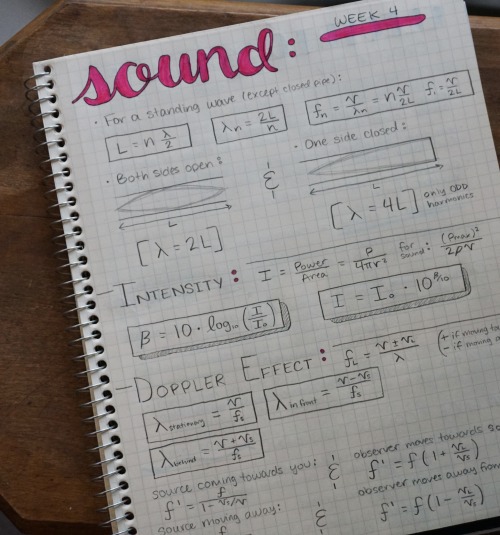 WEEK 4
sound:
• For a standing wave (except closed pipe):
L = n λ/2
λn = 2L/n
fn = v/λn = n v/2L f1 = v/2L
• Both sides open:
&
• One side closed:
L
L
[λ = 2L]
[λ = 4L] only odd harmonics
- INTENSITY: I = Power/Area = P/4πr² for sound: (Pmax)²/2ρv
β = 10 · log10 (I/I0)
I = I0 · 10^β/10
- DOPPLER EFFECT: fL = v ± vL/λ
(+ if moving
- if moving
λstationary = v/fs
λin front = v - vs/fs
λbehind = v + vs/fs
source coming towards you: &
observer moves towards
f' = f/1 - vs/v
f' = f(1 +
source moving away: &
observer moves away from
f' = f(1 -